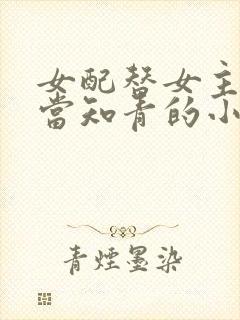 女配替女主
當知青的小
青煙墨染